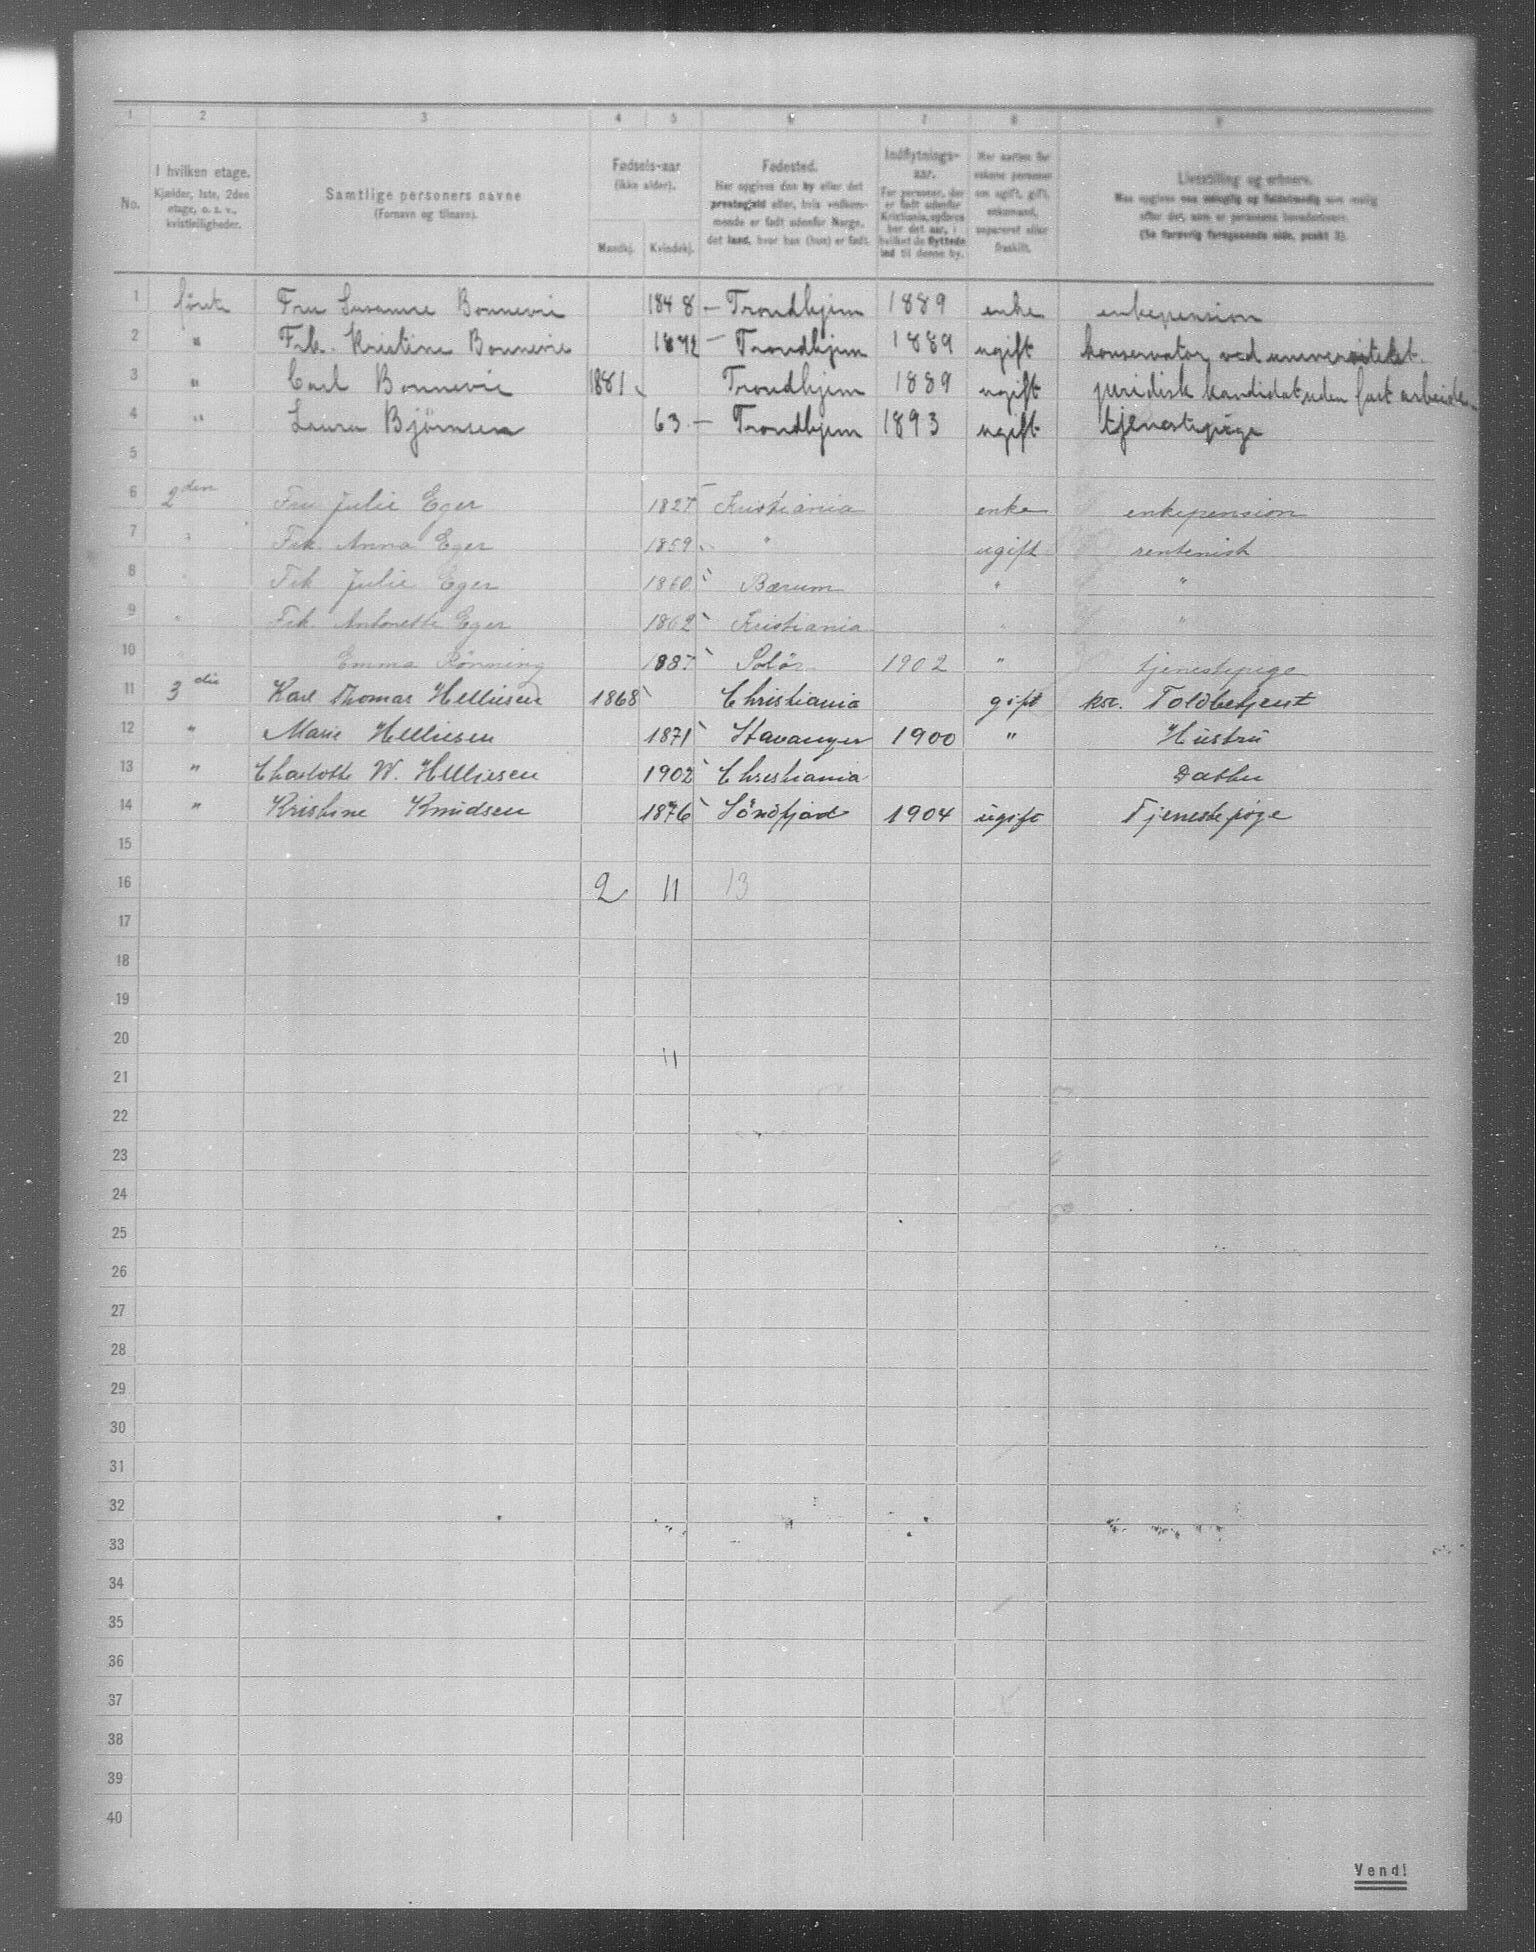 1 2 3 4 5 6 7 8 9
No. I hvilken etage. Kjælder, 1ste, 2den etage, o. s. v., kvistleiligheder. Samtlige personers navne (Fornavn og tilnavn). Fødsels-aar (ikke alder). Mandkj. Kvindekj. Fødested. Her opgives den by eller det prestegjeld eller, hvis vedkommende er født udenfor Norge, det land, hvor han (hun) er født. Indflytnings-aar. For personer, der er født udenfor Kristiania, opføres her det aar, i hvilket de flyttede ind til denne by. Her anføres for voksne personer om ugift, gift, enkemand, separeret eller fraskilt. Livsstilling og erhverv. Man opgives saa nøiagtig og fuldstændig som mulig efter det, som er personens hovederhverv. (Se forøvrig foregaaende side, punkt 3).
1 første Fru Susanne Bonnevie 1848 – Trondhjem 1889 enke enkepension
2 " Frk. Kristine Bonnevie 1872 – Trondhjem 1889 ugift konservator ved universitetet.
3 " Carl Bonnevie 1881 Trondhjem 1889 ugift juridisk kandidat uden fast arbeide
4 " Laura Bjørnsen 63 – Trondhjem 1893 ugift tjenestepige
5
6 2den Fru Julie Eger 1827 Kristiania enke enkepension
7 " Frk. Anna Eger 1859 " ugift rentenist
8 " Frk Julie Eger 1860 Bærum " "
9 " Frk. Antonette Eger 1862 Kristiania " "
10 " Emma Rønning 1887 Solör 1902 " tjenestepige
11 3die Karl Thomas Helliesen 1868 Christiania gift kst. Toldbetjent
12 " Marie Helliesen 1871 Stavanger 1900 " Hustru
13 " Charlotte W. Helliesen 1902 Christiania Datter
14 " Kristine Knudsen 1876 Söndfjord 1904 ugift Tjenestepige
15
16 2 11 13
17
18
19
20
11
21
22
23
24
25
26
27
28
29
30
31
32
33
34
35
36
37
38
39
40
Vend!